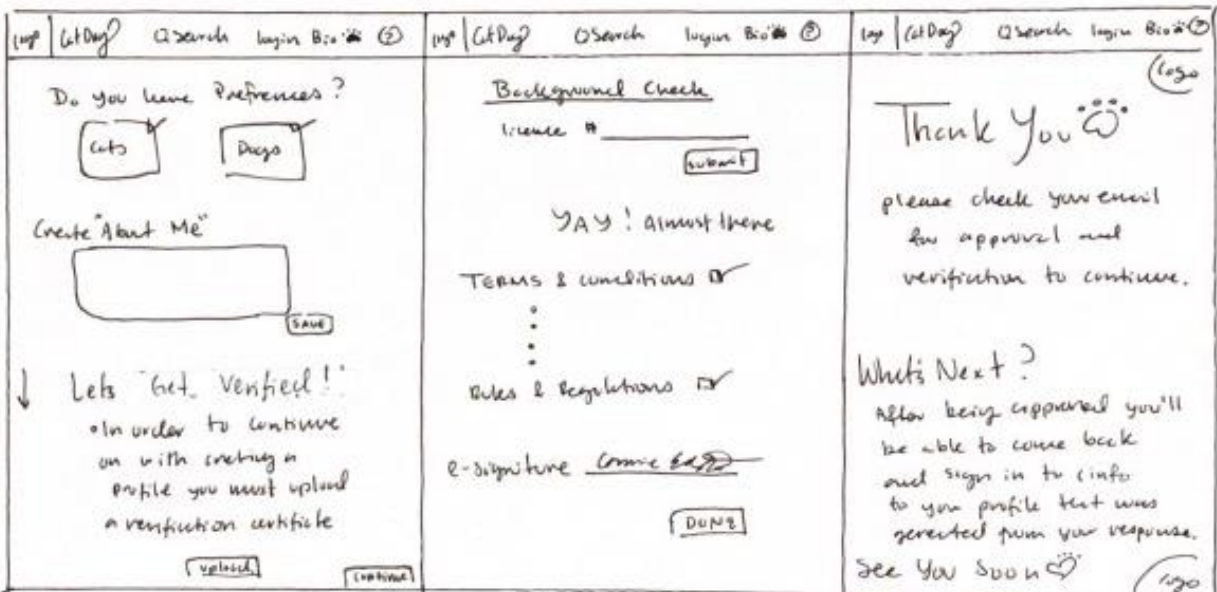 Logo CatDog? Search login Bio ?
Do you have Prefrences?
Cats Dogs
Create "About Me"
SAVE
Lets Get Verified!
In order to continue
on with creating a
profile you must upload
a verifiction certificte
upload
continue
Logo CatDog? Search login Bio ?
Background Check
license #
submit
YAY! Almost there
TERMS & conditions
Rules & Regulations
e-signiture
DONE
Logo CatDog? Search login Bio ?
Logo
Thank You
please check your email
for approval and
verification to continue.
What's Next?
After being approved you'll
be able to come back
and sign in to
to your profile that was
generated from your response.
See You Soon
Logo